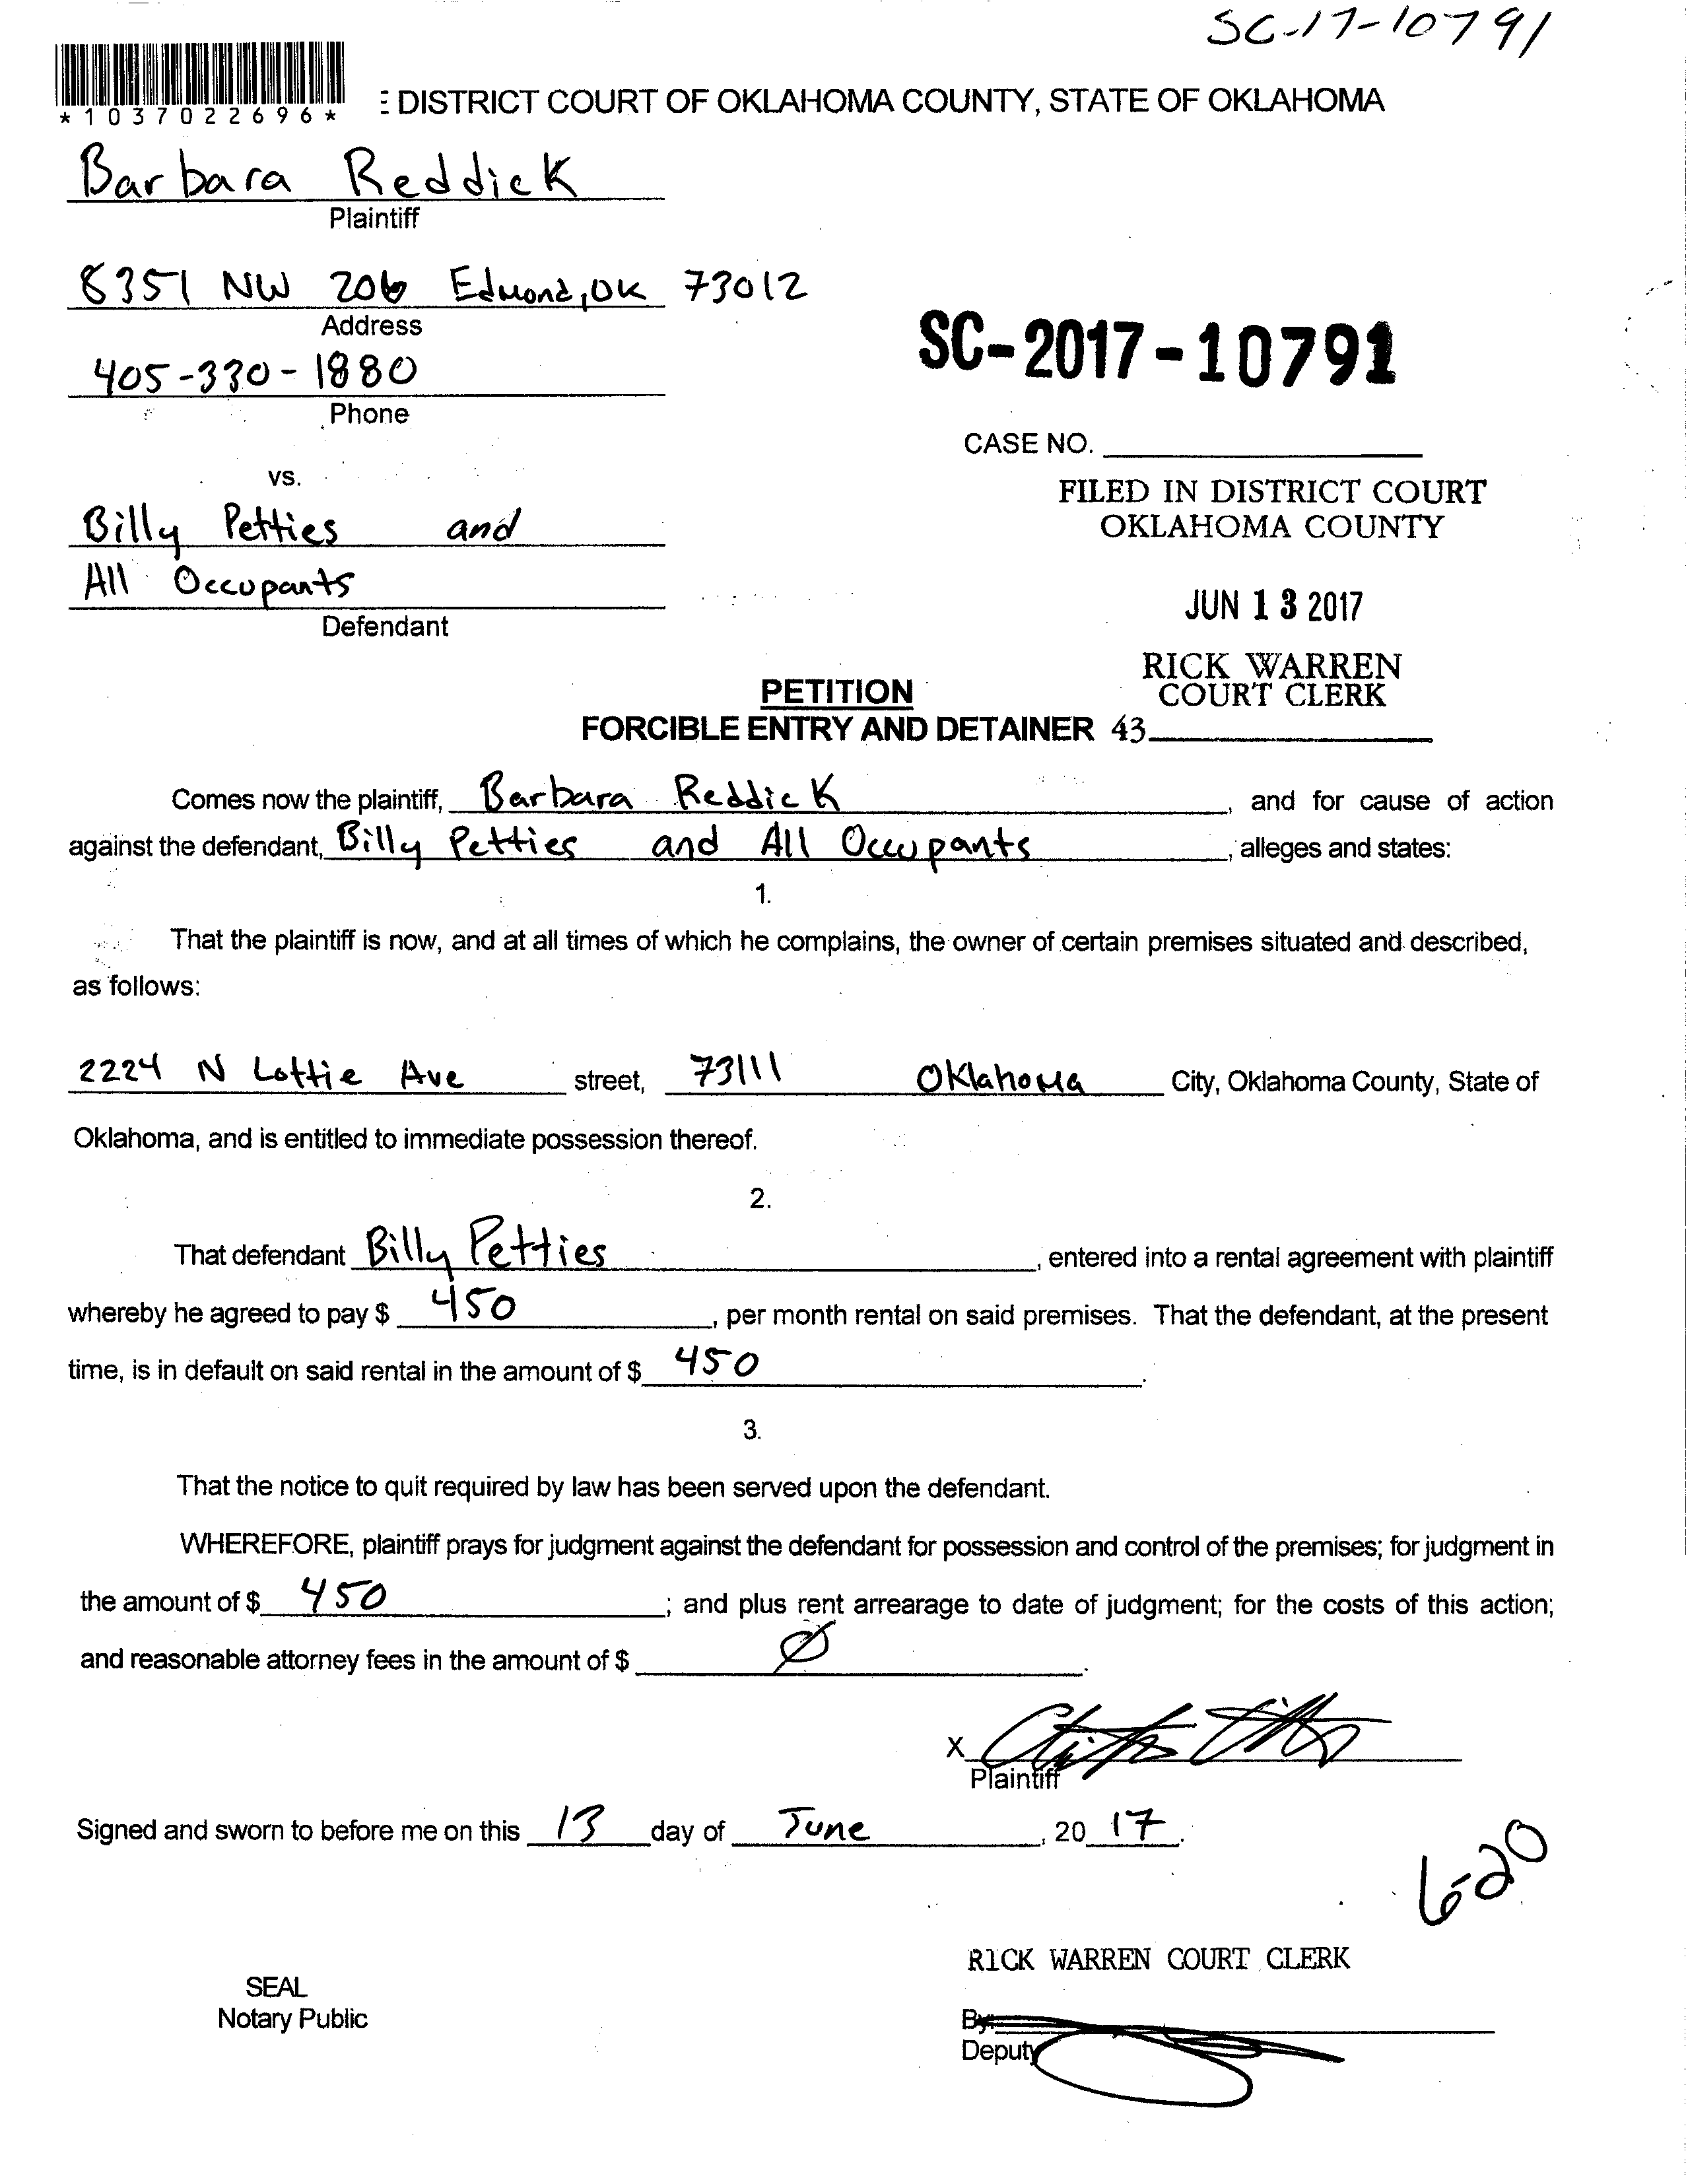 SC-17-10791
*1037022696*
DISTRICT COURT OF OKLAHOMA COUNTY, STATE OF OKLAHOMA
Barbara Reddick
Plaintiff
8351 NW 206 Edmond, OK 73012
Address
405-330-1880
Phone
SC-2017-10791
CASE NO.
vs.
FILED IN DISTRICT COURT
OKLAHOMA COUNTY
Billy Petties and
All Occupants
Defendant
JUN 13 2017
RICK WARREN
COURT CLERK
PETITION
FORCIBLE ENTRY AND DETAINER 43
Comes now the plaintiff, Barbara Reddick, and for cause of action
against the defendant, Billy Petties and All Occupants, alleges and states:
1.
That the plaintiff is now, and at all times of which he complains, the owner of certain premises situated and described,
as follows:
2224 N Lottie Ave street, 73111 Oklahoma City, Oklahoma County, State of
Oklahoma, and is entitled to immediate possession thereof.
2.
That defendant Billy Petties, entered into a rental agreement with plaintiff
whereby he agreed to pay $ 450, per month rental on said premises. That the defendant, at the present
time, is in default on said rental in the amount of $ 450.
3.
That the notice to quit required by law has been served upon the defendant.
WHEREFORE, plaintiff prays for judgment against the defendant for possession and control of the premises; for judgment in
the amount of $ 450; and plus rent arrearage to date of judgment; for the costs of this action;
and reasonable attorney fees in the amount of $ Ø.
X
Plaintiff
Signed and sworn to before me on this 13 day of June, 2017.
6-20
RICK WARREN COURT CLERK
SEAL
Notary Public
By:
Deputy